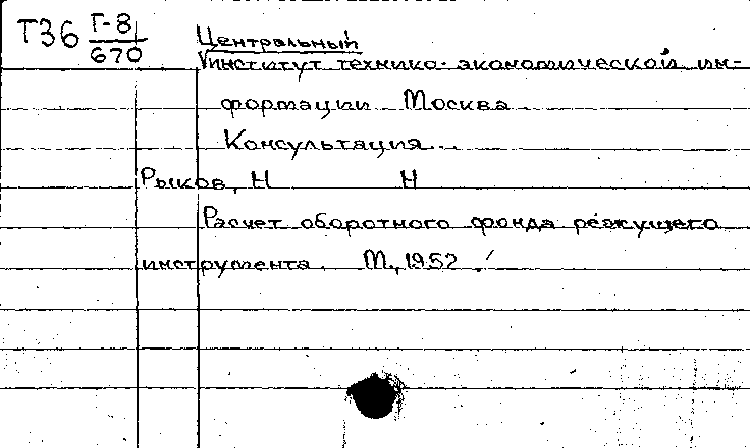 Т36 Г-8/670
Центральный
институт технико-экономической ин-
формации Москва
Консультация...
Рыков, Н Н
Расчет оборотного фонда режущего
инструмента. М., 1952.